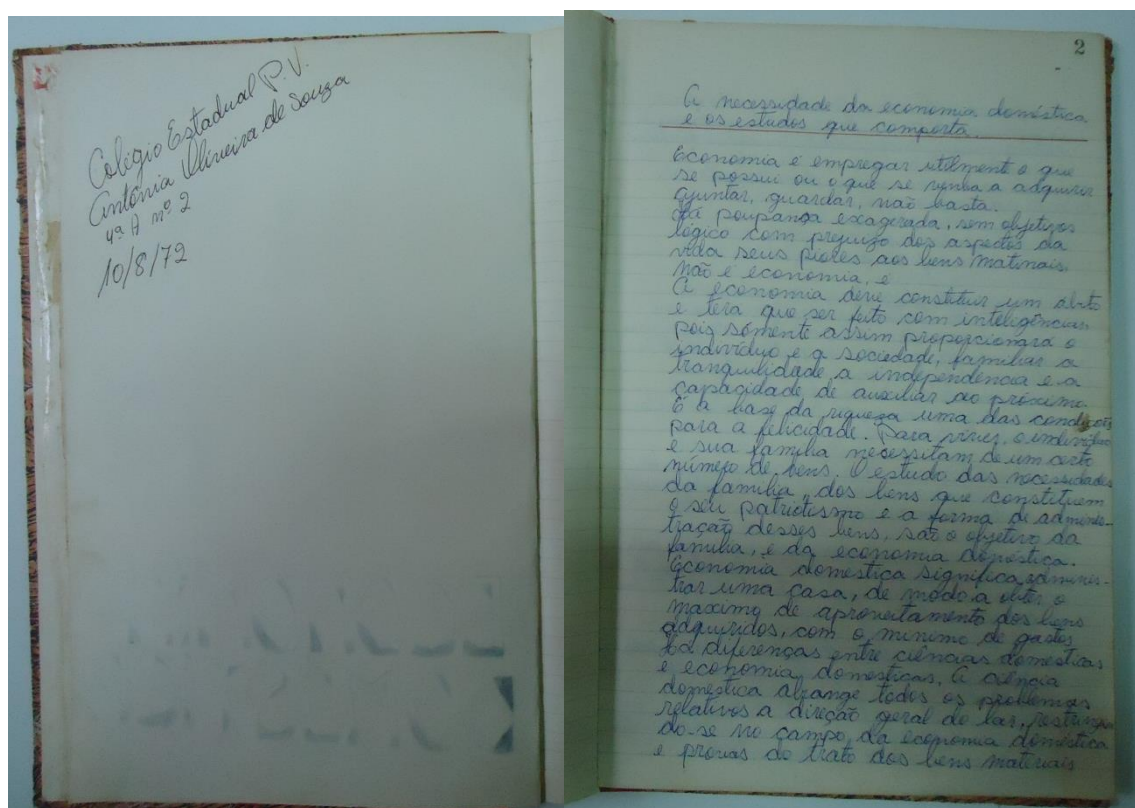 Colégio Estadual P. V.
Antônia Oliveira de Souza
4ª A nº 2
10/8/72
2
A necessidade da economia doméstica
e os estudos que comporta.
Economia e empregar utilmente o que
se possui ou o que se venha a adquirir
ajuntar, guardar, não basta.
Há poupança exagerada, sem objetivos
lógico com prejuizo dos aspectos da
vida seus piores aos bens matinais.
não é economia, e
A economia deve constituir um
e tera que ser feito com inteligência
pois sómente assim proporcionará o
individuo e a sociedade, familiar a
tranquilidade, a independência e a
capacidade de auxiliar ao próximo.
É a base da riqueza uma das condições
para a felicidade. Para viver, o individuo
e sua familia necessitam de um certo
número de bens. O estudo das necessidades
da familia, dos bens que constituem
o seu patriotismo e a forma de adminis-
tração desses bens, são o objetivo da
familia, e da economia doméstica.
Economia doméstica significa, adminis-
trar uma casa, de modo a obter o
maximo de aproveitamento dos bens
adquiridos, com o minimo de gastos
Há diferenças entre ciências domesticas
e economia domesticas, A ciência
doméstica abrange todos os problemas
relativos a direção geral do lar,
do-se no campo, da economia doméstica
e provas do trato dos bens materiais